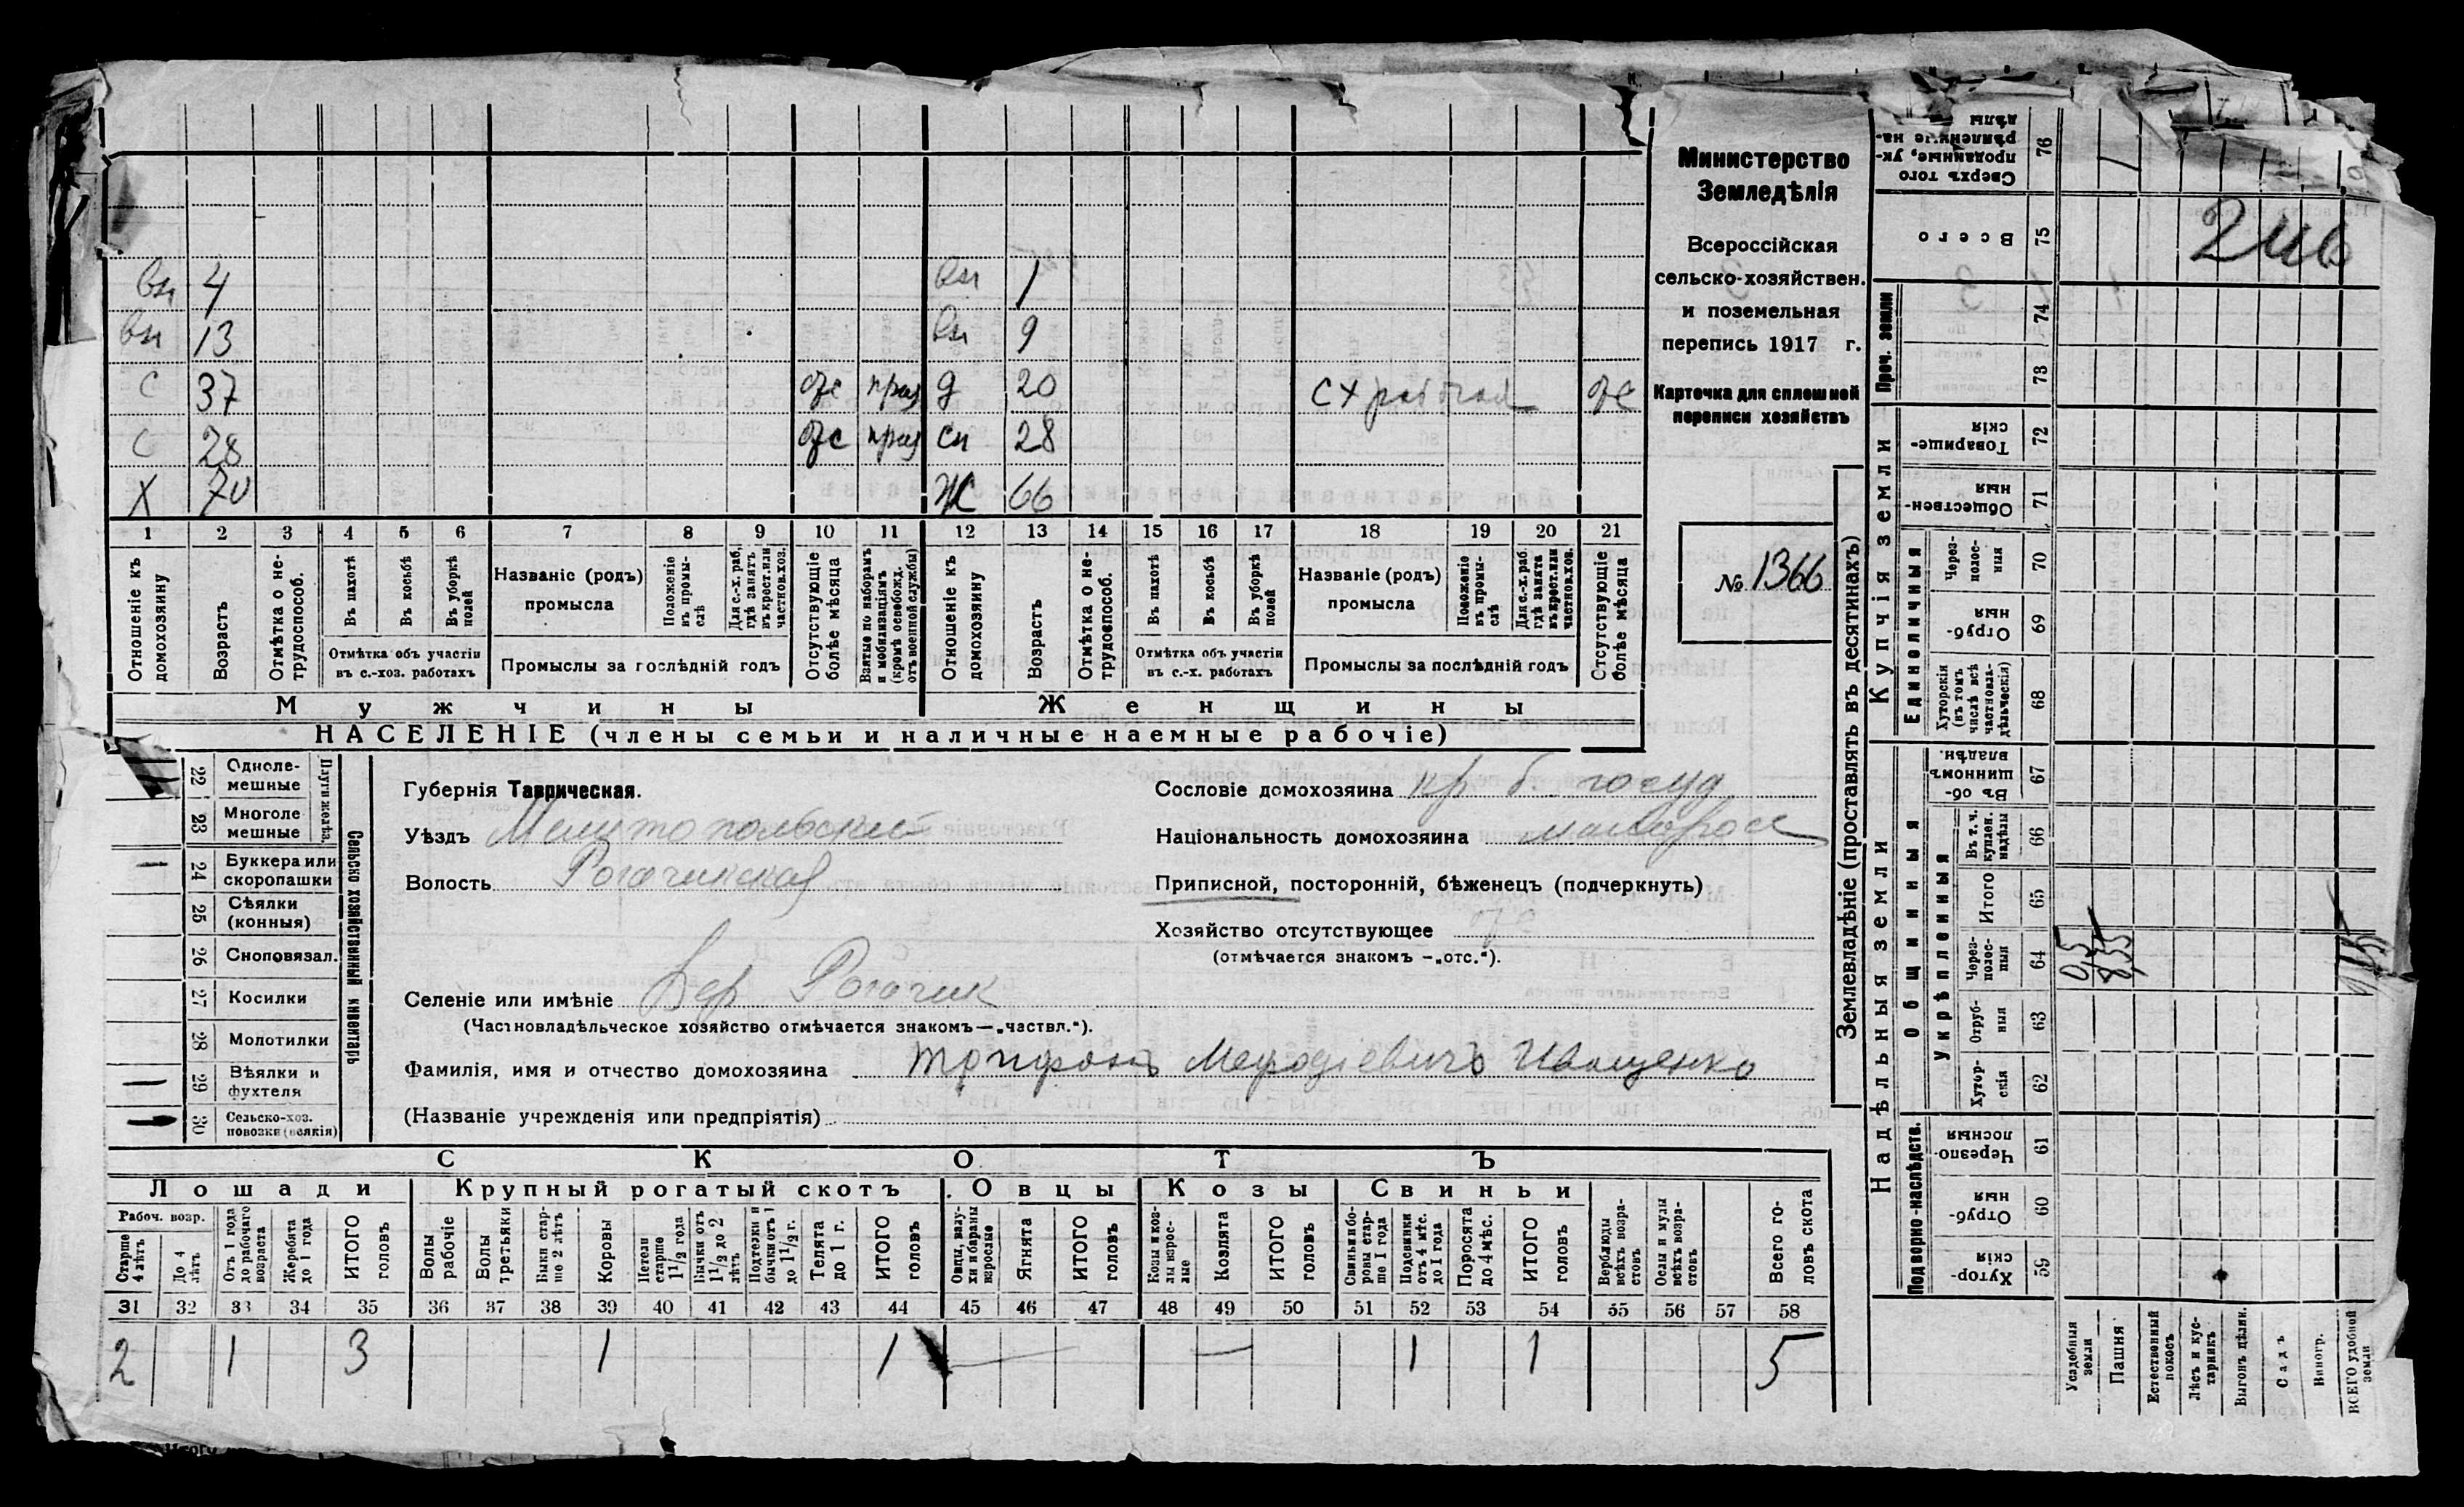 вн 4 вн 1
вн 13 вн 9
с 37 отс д 20 с х отс
с 28 отс сн 28
х 70 Ж 66
1 2 3 4 5 6 7 8 9 10 11 12 13 14 15 16 17 18 19 20 21
Отношеніе къ домохозяину
Возрастъ
Отмѣтка о нетрудоспособ.
Въ пахотѣ
Въ косьбѣ
Въ уборкѣ полей
Отмѣтка объ участіи
въ с.-хоз. работахъ
Названіе (родъ)
промысла
Положеніе въ промыслѣ
Для с.-х. раб., гдѣ занятъ въ крест. или частнов. хоз.
Промыслы за послѣдній годъ
Отсутствующіе болѣе мѣсяца
Взятые по наборамъ и мобилизаціямъ (кромѣ освобожд. отъ военной службы)
Отношеніе къ домохозяину
Возрастъ
Отмѣтка о нетрудоспособ.
Въ пахотѣ
Въ косьбѣ
Въ уборкѣ полей
Отмѣтка объ участіи
въ с.-х. работахъ
Названіе (родъ)
промысла
Положеніе въ промыслѣ
Для с.-х. раб. гдѣ занята въ крест. или частнов. хоз.
Промыслы за послѣдній годъ
Отсутствующіе болѣе мѣсяца
Мужчины Женщины
НАСЕЛЕНІЕ (члены семьи и наличные наемные рабочіе)
Министерство
Земледѣлія
Всероссійская
сельско-хозяйствен.
и поземельная
перепись 1917 г.
Карточка для сплошной
переписи хозяйствъ
№ 1366
22 Однолемешные
23 Многолемешные
24 Буккера или скоропашки
25 Сѣялки (конныя)
26 Сноповязал.
27 Косилки
28 Молотилки
29 Вѣялки и фухтеля
30 Сельско-хоз. повозки (всякія)
Сельско хозяйственный инвентарь
Губернія Таврическая.
Уѣздъ Мелитопольский
Волость Рогачикская
Сословіе домохозяина кр б. госуд
Національность домохозяина малоросс
Приписной, посторонній, бѣженецъ (подчеркнуть)
Хозяйство отсутствующее
(отмѣчается знакомъ —„отс.“).
Селеніе или имѣніе Вер Рогачик
(Частновладѣльческое хозяйство отмѣчается знакомъ—„частвл.“).
Фамилія, имя и отчество домохозяина Мефодіевичъ Иващенко
(Названіе учрежденія или предпріятія)
СКОТЪ
Лошади Крупный рогатый скотъ Овцы Козы Свиньи
Рабоч. возр.
Старше 4 лѣтъ
До 4 лѣтъ
Отъ 1 года до рабочаго возраста
Жеребята до 1 года
ИТОГО головъ
Волы рабочіе
Волы третьяки
Быки старше 2 лѣтъ
Коровы
Нетели старше 1½ года
Бычки отъ 1½ до 2 лѣтъ
Подтелки и бычки отъ 1 до 1½ г.
Телята до 1 г.
ИТОГО головъ
Овцы, валухи и бараны взрослые
Ягнята
ИТОГО головъ
Козы и козлы взрослые
Козлята
ИТОГО головъ
Свиньи и боровы старше 1 года
Подсвинки отъ 4 мѣс. до 1 года
Поросята до 4 мѣс.
ИТОГО головъ
Верблюды всѣхъ возрастовъ
Ослы и мулы всѣхъ возрастовъ
Всего головъ скота
31 32 33 34 35 36 37 38 39 40 41 42 43 44 45 46 47 48 49 50 51 52 53 54 55 56 57 58
2 1 3 1 1 — — 1 1 5
Землевладѣніе (проставлять въ десятинахъ)
Надѣльныя земли Купчія земли Проч. земли
Подворно-наслѣдств.
Общинныя
Укрѣпленныя
Единоличныя
Сверхъ того проданные, укрѣпленные надѣлы 76
Всего 75
74
73
Товарищескія 72
Общественныя 71
Черезполосныя 70
Отрубныя 69
Хуторскія (въ томъ числѣ всѣ частновладѣльческія) 68
Въ общинномъ владѣн. 67
Въ т. ч. куплен. надѣлы 66
Итого 65
Черезполосныя 64
Отрубныя 63
Хуторскія 62
Черезполосныя 61
Отрубныя 60
Хуторскія 59
Усадебныя земли
Пашня
Естественный покосъ
Лѣсъ и кустарникъ
Выгонъ цѣлин.
Садъ
Виногр.
ВСЕГО удобной земли